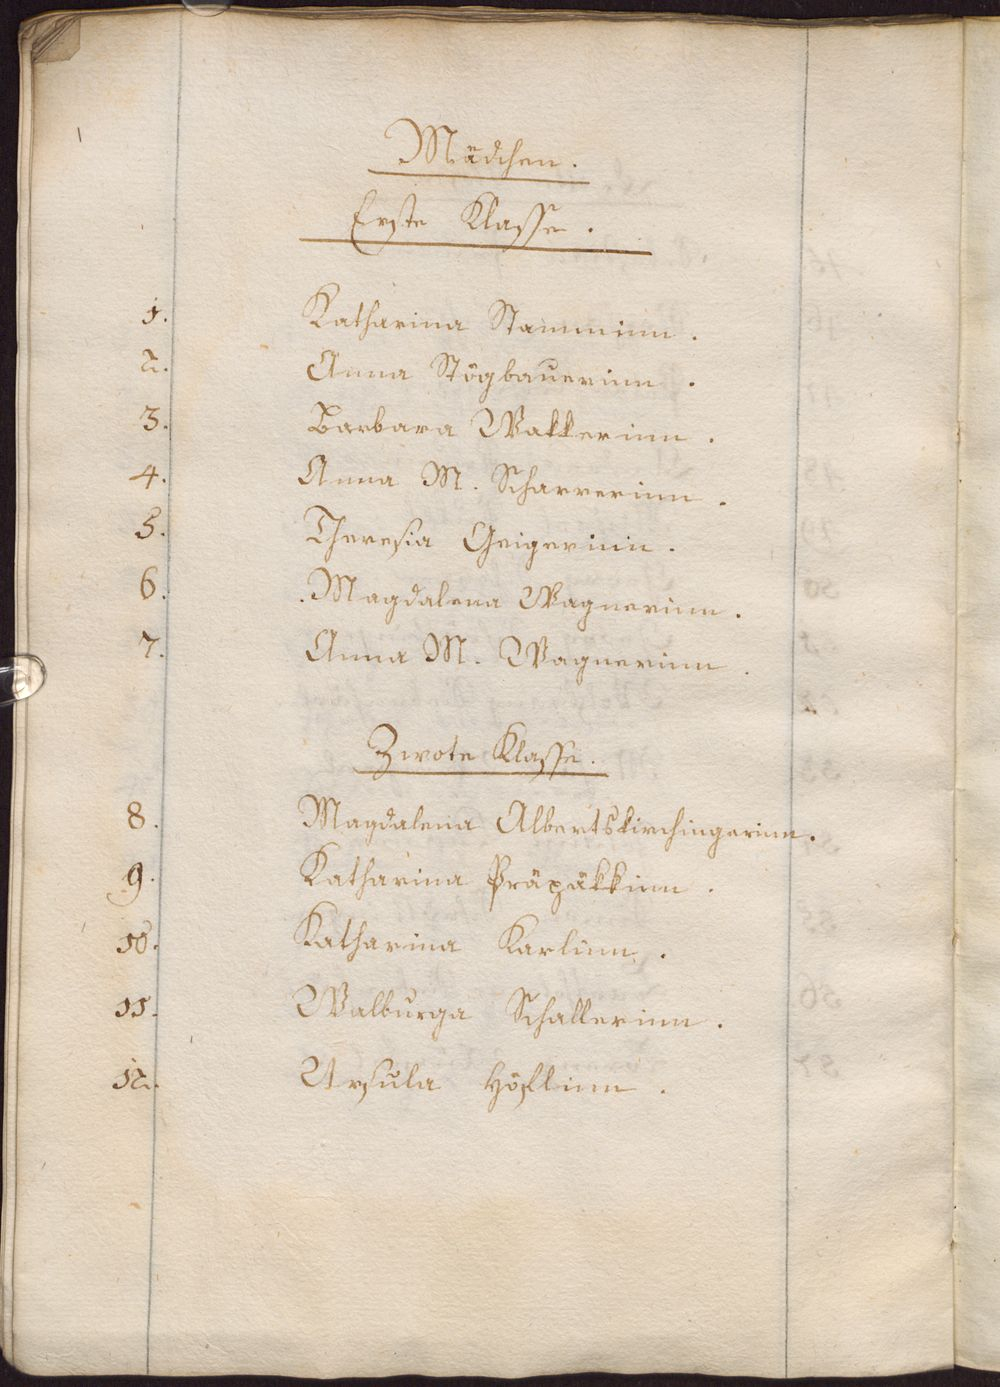 Mädchen.
Erste Klasse.
1. Katharina Stamminn.
2. Anna Stögbauerinn.
3. Barbara Wakkerinn.
4. Anna M. Scharrerinn.
5. Theresia Geigerinn.
6. Magdalena Wagnerinn.
7. Anna M. Wagnerinn.
Zwote Klasse.
8. Magdalena Albertskirchingerinn.
9. Katharina Präpäkkinn.
10. Katharina Karlinn.
11. Walburga Schallerinn.
12. Ursula Höflinn.